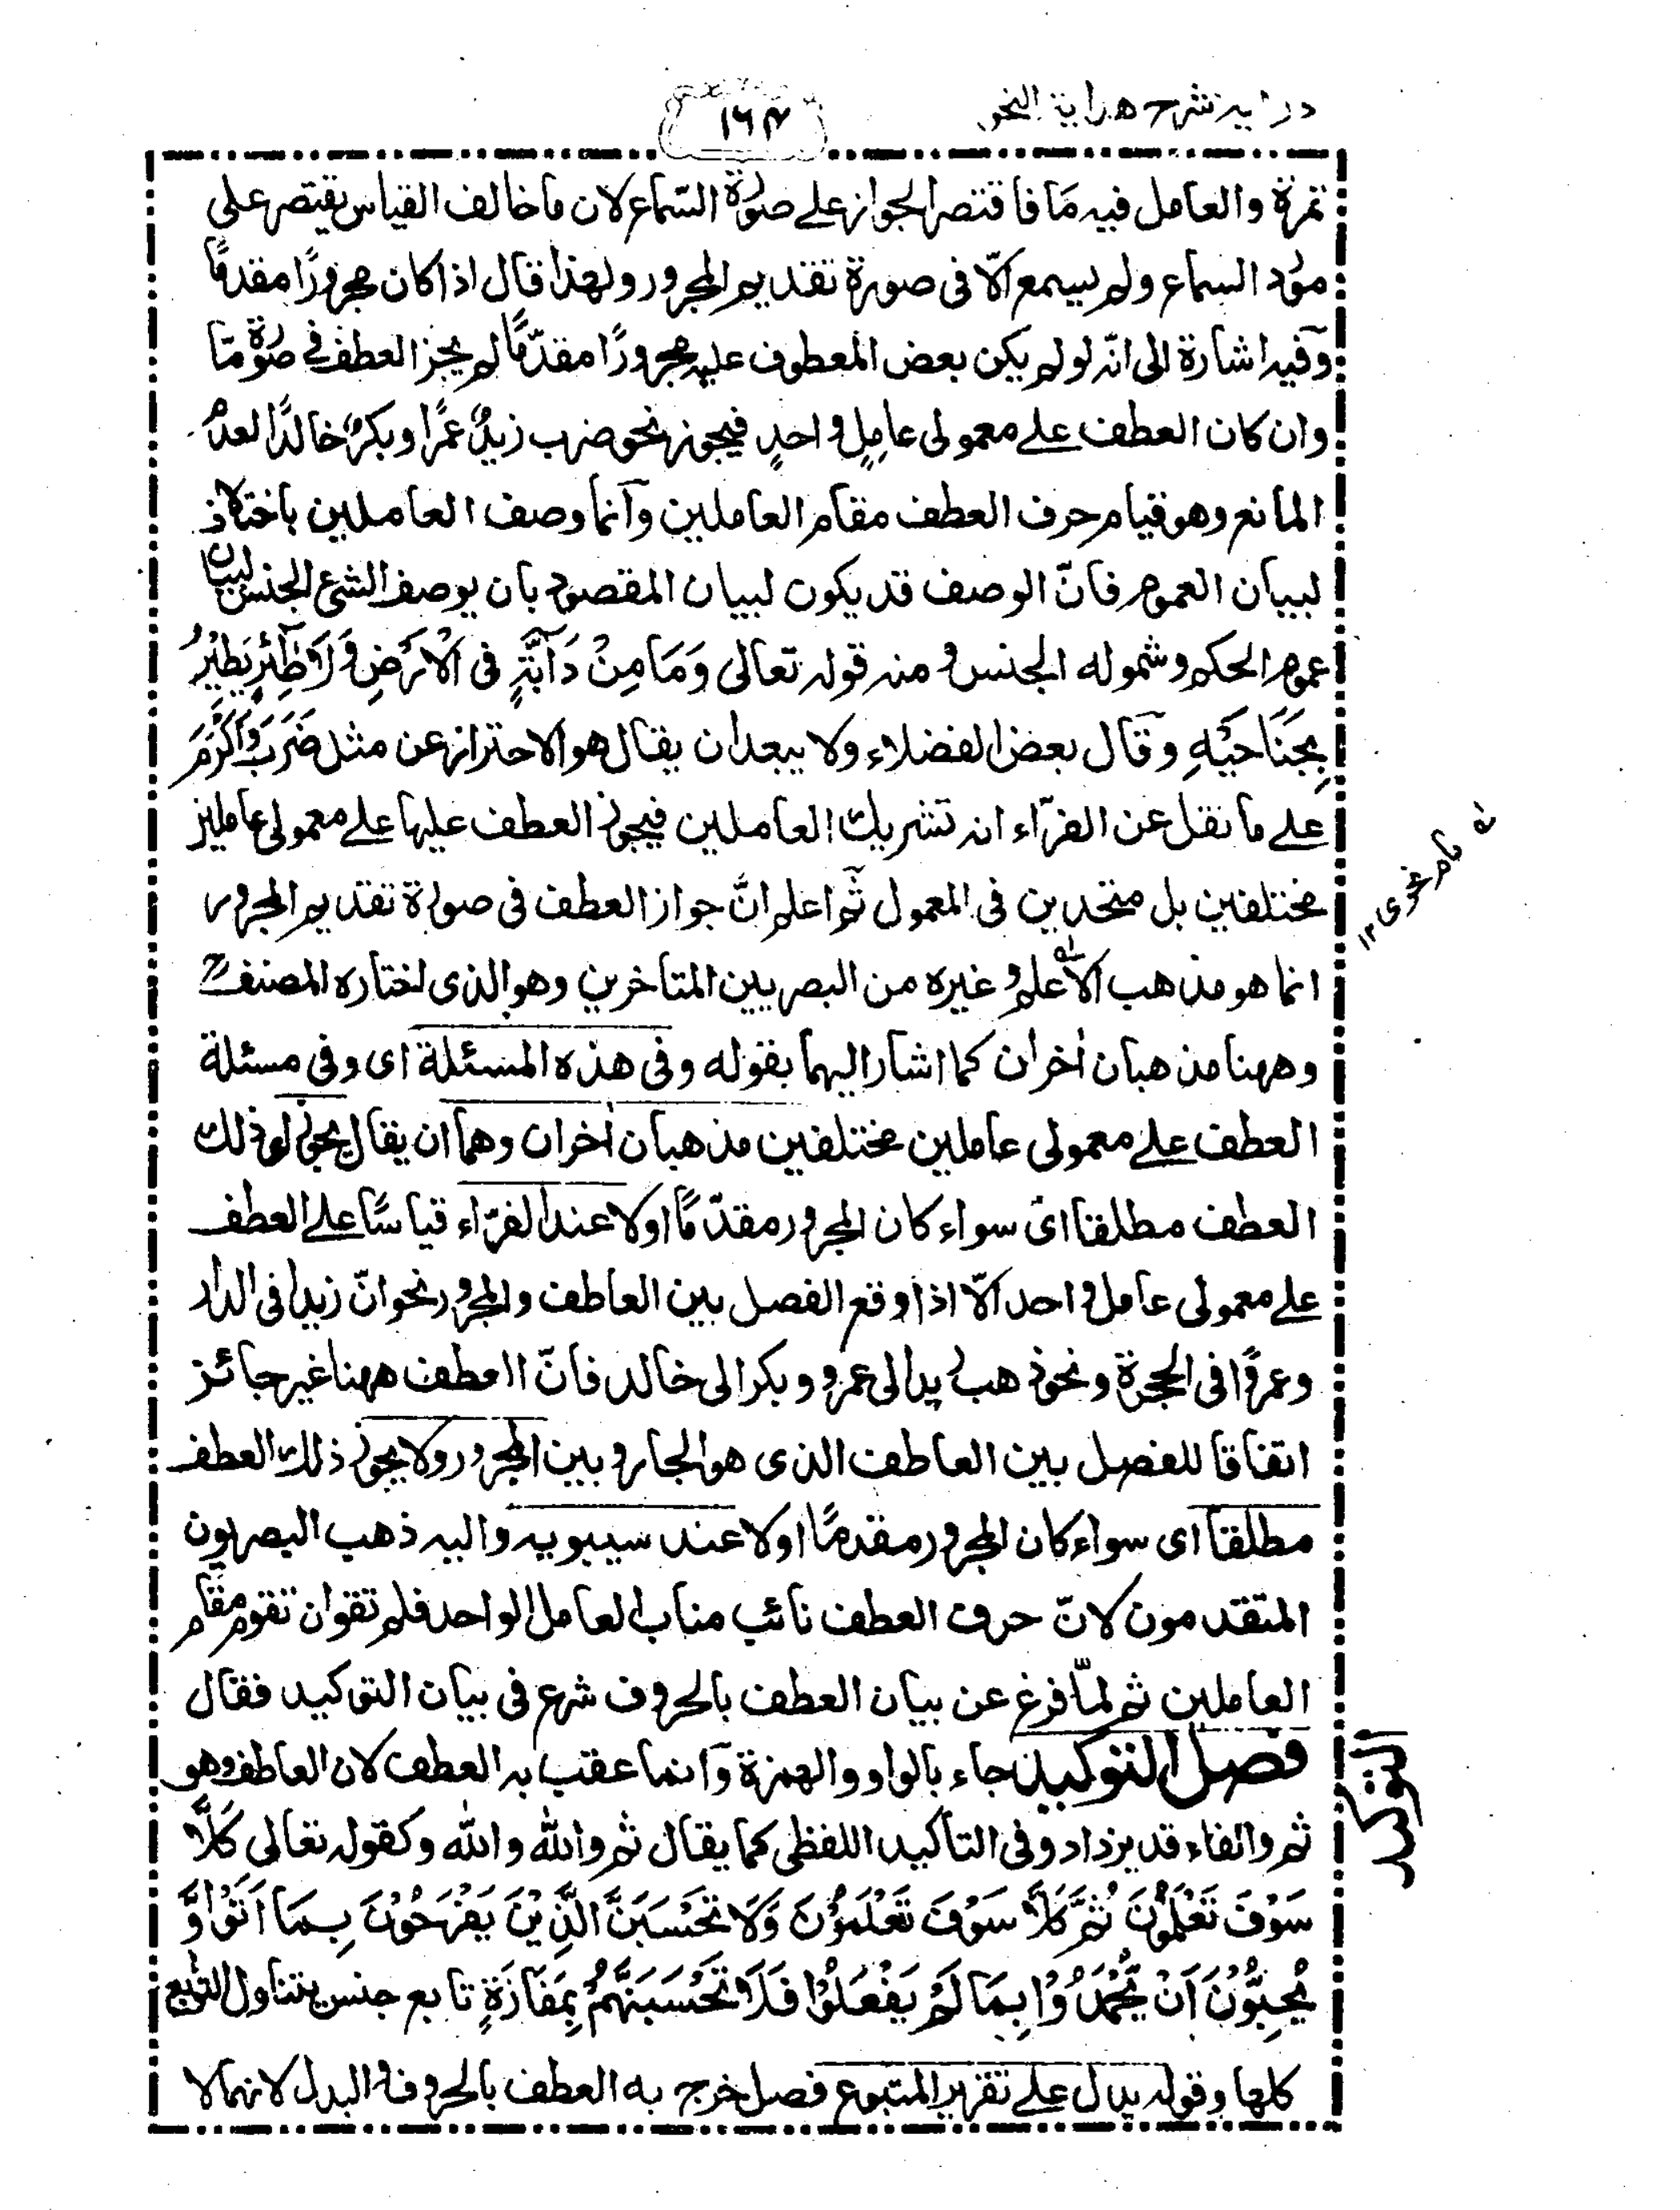 دراية شرح هداية النحو
١٦٤
تمرة والعامل فيه مَا فاقتصر الجواز على صورة السّماع لان ما خالف القياس يقتصر على
مورد السماع ولم يسمع الّا فى صورة تقديم المجرور ولهذا قال اذا كان مجرورًا مقدمًا
وفيه اشارة الى انّه لو لم يكن بعض المعطوف عليه مجرورًا مقدّمًا لم يجز العطف فى صورة مّا
وان كان العطف على معمولى عاملٍ واحدٍ فيجوز نحو ضرب زيدٌ عمرًا وبكرٌ خالدًا لعدم
المانع وهو قيام حرف العطف مقام العاملين وانما وصف العاملين باختلاف
لبيان العموم فانّ الوصف قد يكون لبيان المقصود بان يوصف الشئ الجنس لبيان
عموم الحكم وشموله الجنس و منه قوله تعالى وَمَا مِنْ دَآبَّةٍ فى الْاَرْضِ وَلَا طَآئِرٍ يَطِيْرُ
بِجَنَاحَيْهِ وقال بعض الفضلاء ولا يبعد ان يقال هو الاحتراز عن مثل ضَرَبَ وَاَكْرَمَ
على ما نقل عن الفرّاء انه تشريك العاملين فيجوز العطف عليها على معمولى عاملين
مختلفين بل متحدين فى المعمول ثمّ اعلم انّ جواز العطف فى صورة تقديم المجرور
انما هو مذهب الاعلم و غيره من البصريين المتاخرين وهو الذى اختاره المصنف
وههنا مذهبان اٰخران كما اشار اليهما بقوله وفى هذه المسئلة اى وفى مسئلة
العطف على معمولى عاملين مختلفين مذهبان اٰخران وهما ان يقال يجوز ذلك
العطف مطلقا اى سواء كان المجرور مقدّمًا اولا عند الفرّاء قياسًا على العطف
على معمولى عامل واحد الّا اذا وقع الفصل بين العاطف والمجرور نحو انّ زيدا فى الدار
وعمروًا فى الحجرة ونحو ذهب زيد الى عمرو وبكر الى خالد فانّ العطف ههنا غير جائز
اتفاقا للفصل بين العاطف الذى هو الجار و بين المجرور ولا يجوز ذلك العطف
مطلقا اى سواء كان المجرور مقدمًا اولا عند سيبويه واليه ذهب البصريون
المتقدمون لانّ حرف العطف نائب مناب العامل الواحد فلم تقو ان تقوم مقام
العاملين ثم لمّا فرغ عن بيان العطف بالحروف شرع فى بيان التوكيد فقال
فصل التوكيد جاء بالواو والهمزة وانما عقب به العطف لان العاطف وهو
ثم والفاء قد يزداد وفى التاكيد اللفظى كما يقال ثم والله والله وكقوله تعالى كَلَّا
سَوْفَ تَعْلَمُوْنَ ثُمَّ كَلَّا سَوْفَ تَعْلَمُوْنَ وَلَا تَحْسَبَنَّ الَّذِيْنَ يَفْرَحُوْنَ بِمَا اَتَوْا وَّ
يُحِبُّوْنَ اَنْ يُّحْمَدُوْا بِمَا لَمْ يَفْعَلُوْا فَلَا تَحْسَبَنَّهُمْ بِمَفَازَةٍ تابع جنس يتناول التوابع
كلها وقوله يدل على تقرير المتبوع فصل خرج به العطف بالحروف والبدل لانهما لا
نام نحوى ١٢
التوكيد